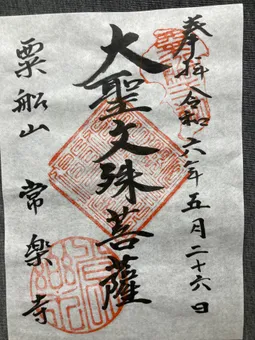 奉拝 令和六年五月二十六日
大聖文殊菩薩
粟船山 常楽寺